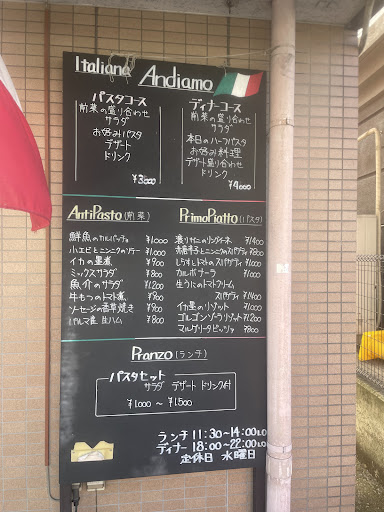 Italiana Andiamo
パスタコース
前菜の盛り合わせ
サラダ
お好みパスタ
デザート
ドリンク
¥3000
ディナーコース
前菜の盛り合わせ
サラダ
本日のハーフパスタ
お好み料理
デザート盛り合わせ
ドリンク
¥4000
AntiPasto (前菜)
鮮魚のカルパッチョ ¥1,000
小エビとニンニクのソテー ¥1000
イカの墨煮 ¥900
ミックスサラダ ¥800
魚介のサラダ ¥1200
牛もつのトマト煮 ¥900
ソーセージの香草焼き ¥900
パルマ産 生ハム ¥800
PrimoPiatto (パスタ)
渡りガニのリングイネ ¥1400
赤唐辛子とニンニクのスパゲティ ¥800
しらすとトマトのスパゲティ ¥1000
カルボナーラ ¥1000
生うにのトマトクリーム
スパゲティ ¥1400
イカ墨のリゾット ¥1000
ゴルゴンゾーラリゾット ¥1200
マルゲリータピッツァ ¥800
Pranzo (ランチ)
パスタセット
サラダ デザート ドリンク付
¥1000 〜 ¥1500
ランチ 11:30〜14:00 L.O
ディナー 18:00〜22:00 L.O
定休日 水曜日